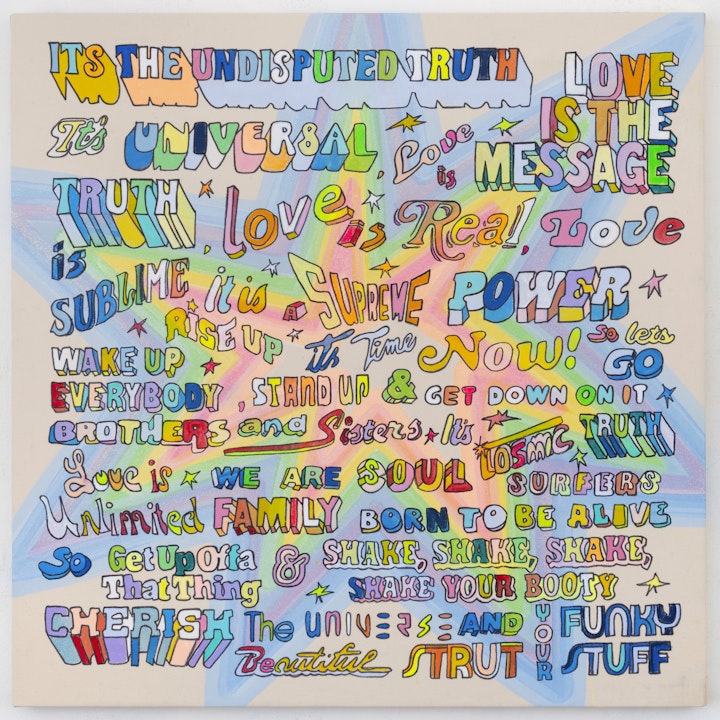 ITS THE UNDISPUTED TRUTH LOVE
It's UNIVERSAL, Love is IS THE MESSAGE
TRUTH, Love is Real, Love
is SUBLIME it is A SUPREME POWER
RISE UP its Time Now! So lets GO
WAKE UP
EVERYBODY, STAND UP & GET DOWN ON IT
BROTHERS and Sisters It's COSMIC TRUTH
Love is WE ARE SOUL SURFERS
Unlimited FAMILY BORN TO BE ALIVE
So Get Up Offa & SHAKE, SHAKE, SHAKE,
That Thing SHAKE YOUR BOOTY
CHERISH The UNIVERSE AND YOUR FUNKY
Beautiful STRUT STUFF